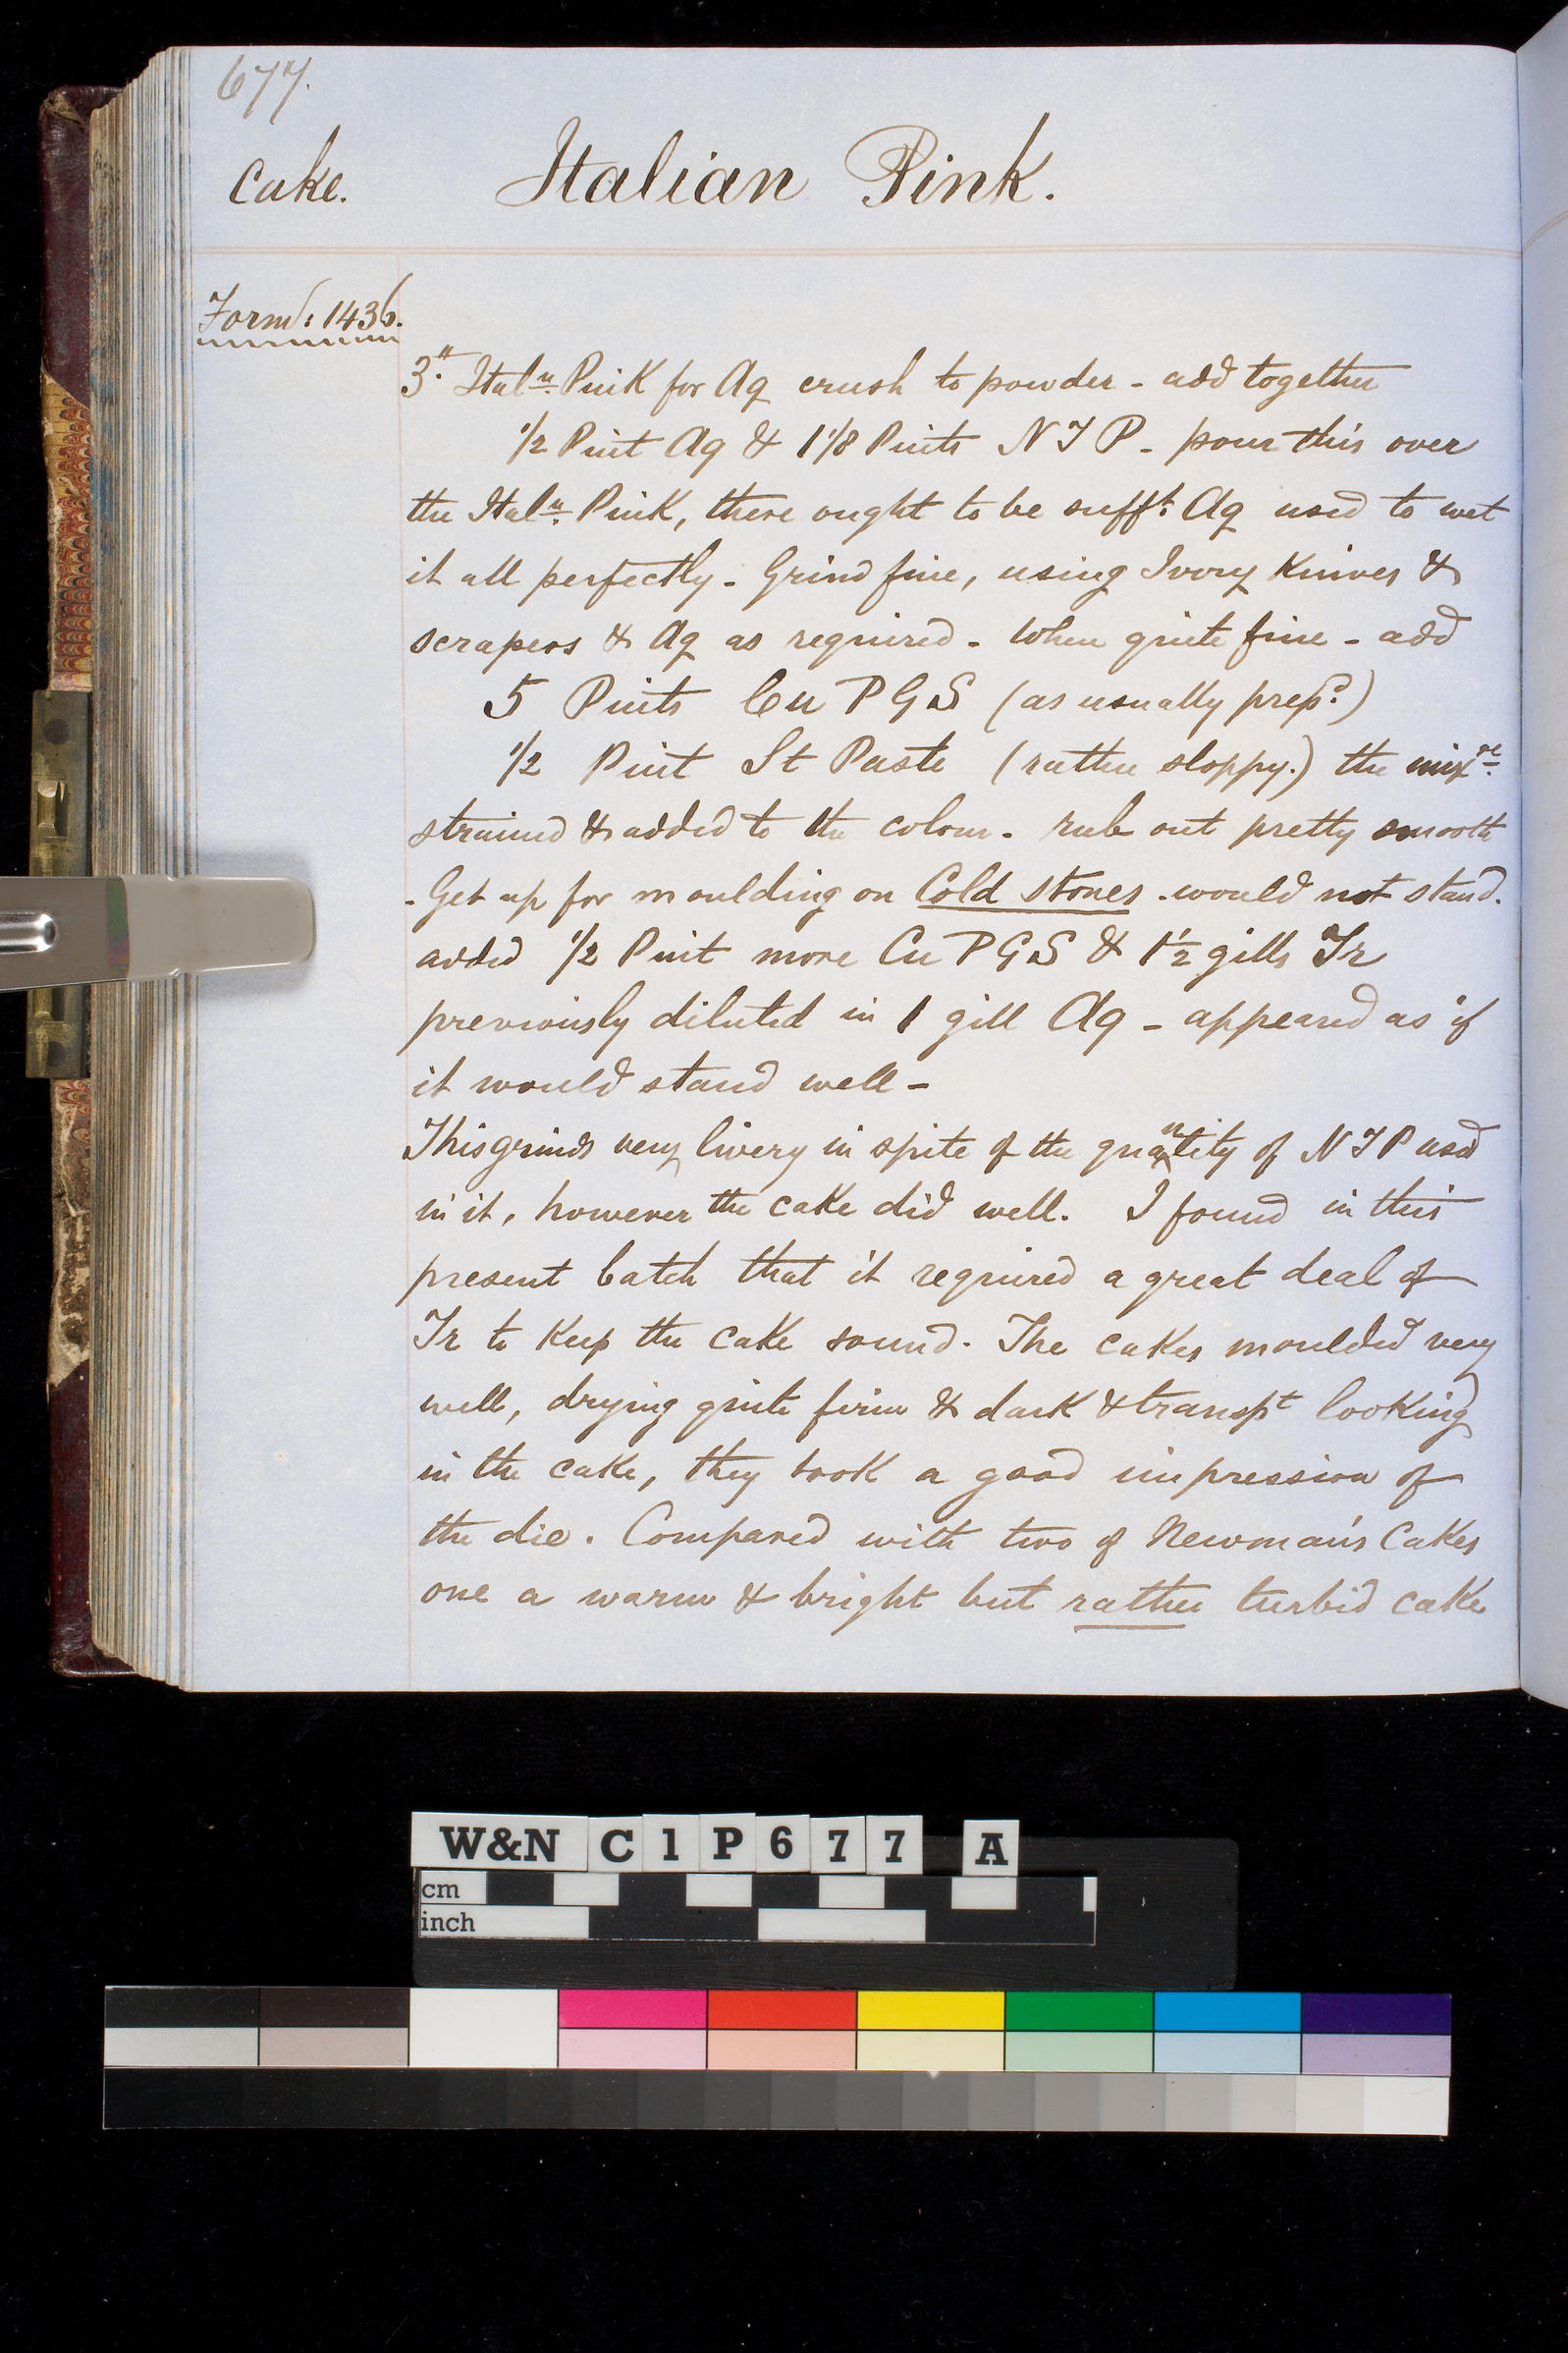 677.
Cake. Italian Pink.
Formª: 1436.
3." Italⁿ. Pink for Aq crush to powder - add together
1/2 Pint Aq & 1 1/8 Pints N T P - pour this over
the Italⁿ. Pink, there ought to be sufft: Aq used to wet
it all perfectly - Grind fine, using Ivory Knives &
scrapers & Aq as required - When quite fine - add
5 Pints Cu P G S (as usually prepd:)
1/2 Pint St Paste (rather sloppy.) the mixre.
strained & added to the colour - rub out pretty smooth
- Get up for moulding on Cold Stones - would not stand.
added 1/2 Pint more Cu P G S & 1 1/2 gills Tr
previously diluted in 1 gill Aq - appeared as if
it would stand well -
This grinds very livery in spite of the quantity of N T P used
in it, however the cake did well. I found in this
present batch that it required a great deal of
Tr to Keep the cake sound. The cakes moulded very
well, drying quite firm & dark & transpt looking
in the cake, they took a good impression of
the die. Compared with two of Newman's Cakes
one a warm & bright but rather turbid cake
W&N C 1 P 6 7 7 A
cm
inch